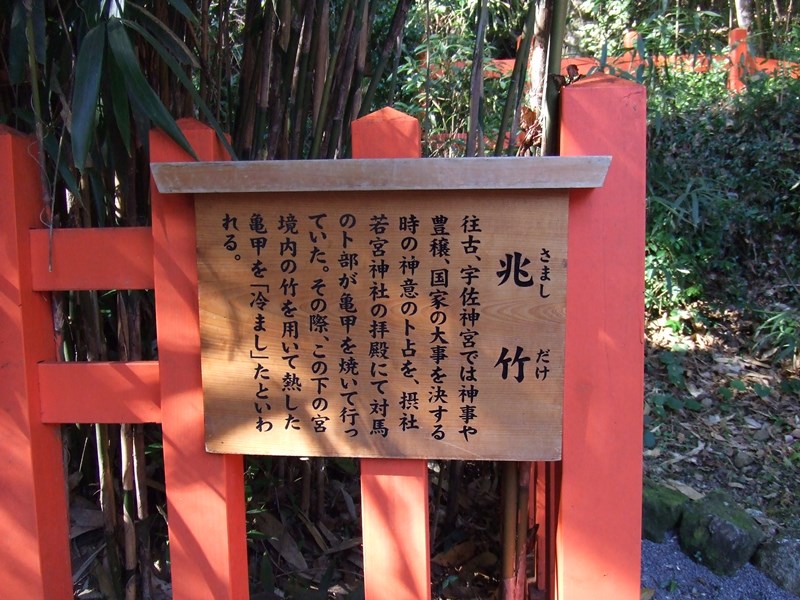 兆竹
さましだけ
往古、宇佐神宮では神事や
豊穣、国家の大事を決する
時の神意の卜占を、摂社
若宮神社の拝殿にて対馬
の卜部が亀甲を焼いて行っ
ていた。その際、この下の宮
境内の竹を用いて熱した
亀甲を「冷まし」たといわ
れる。